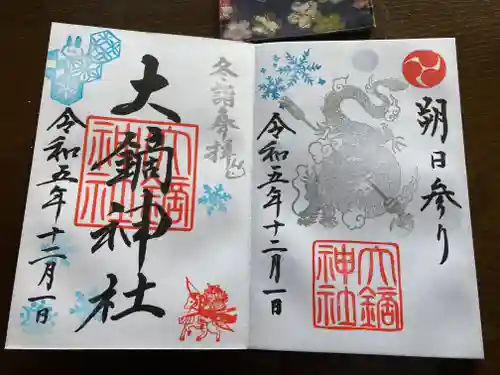 朔日参り
令和五年十二月一日
大鏑神社
冬詣奉拝
大鏑神社
令和五年十二月一日
大鏑神社